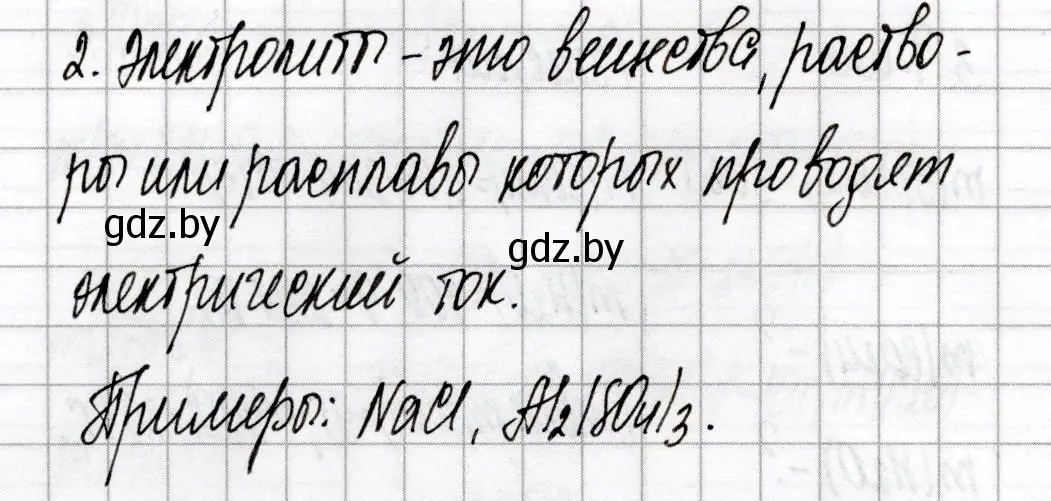 2. Электролиты – это вещества, раство-
ры или расплавы которых проводят
gdz.by
gdz.by
электрический ток.
Примеры: NaCl, Al₂(SO₄)₃.